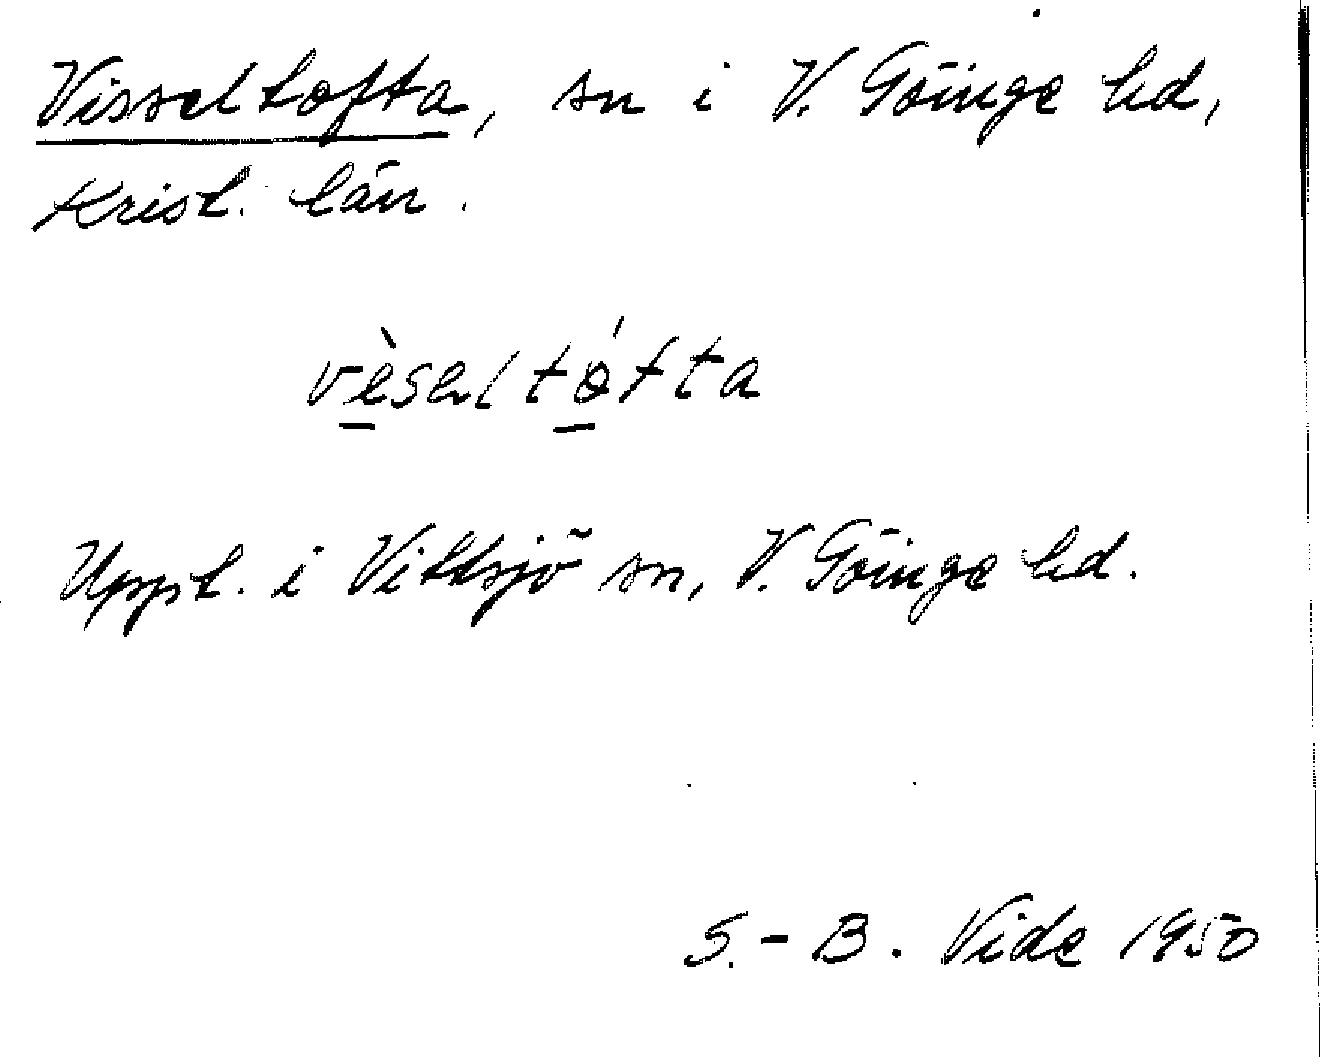 Visseltofta, sn i V. Göinge hd,
Krist. län.
vèseltófta
Uppt. i Vittsjö sn, V. Göinge hd.
S.-B. Vide 1950